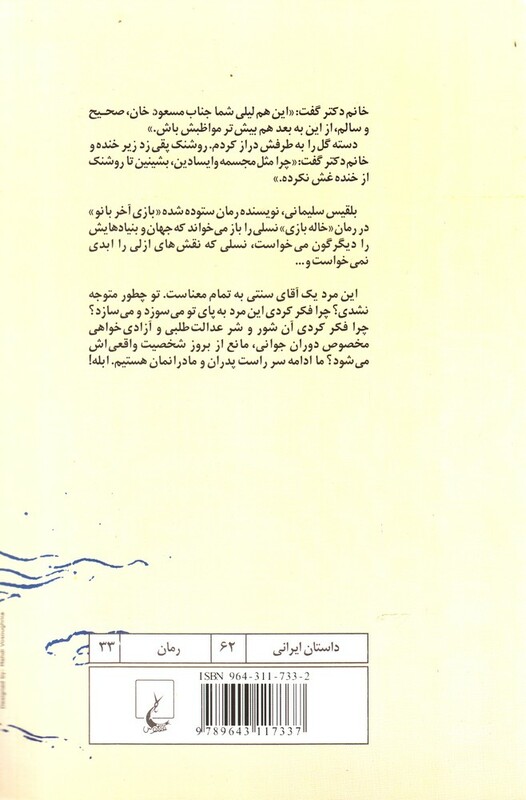 خانم دکتر گفت: «این هم لیلی شما جناب مسعود خان، صحیح
و سالم، از این به بعد هم بیش‌تر مواظبش باش.»
دسته گل را به طرفش دراز کردم. روشنک پقی زد زیر خنده و
خانم دکتر گفت: «چرا مثل مجسمه وایسادین، بشینین تا روشنک
از خنده غش نکرده.»
بلقیس سلیمانی، نویسنده رمان ستوده شده «بازی آخر بانو»
در رمان «خاله بازی» نسلی را باز می‌خواند که جهان و بنیادهایش
را دیگرگون می‌خواست، نسلی که نقش‌های ازلی را ابدی
نمی‌خواست و...
این مرد یک آقای سنتی به تمام معناست. تو چطور متوجه
نشدی؟ چرا فکر کردی این مرد به پای تو می‌سوزد و می‌سازد؟
چرا فکر کردی آن شور و شر عدالت‌طلبی و آزادی‌خواهی
مخصوص دوران جوانی، مانع از بروز شخصیت واقعی‌اش
می‌شود؟ ما ادامه سر راست پدران و مادرانمان هستیم. ابله!
داستان ایرانی ۶۲ رمان ۳۳
ISBN 964-311-733-2
9 789643 117337
Designed by: Mehdi